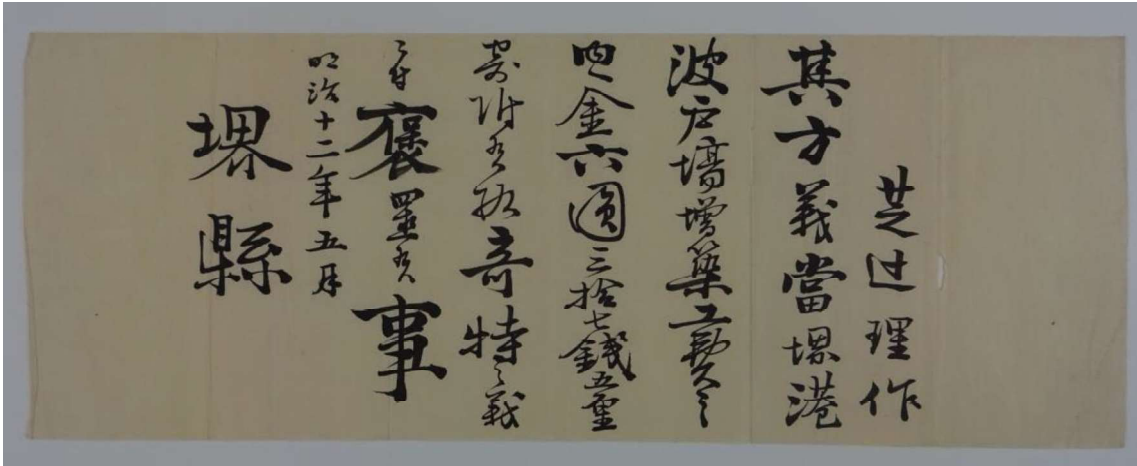 芝辻理作
其方義當堺港
波戸場増築工費之
内金六圓三拾七錢五厘
寄附候段奇特之義
ニ付褒置候事
明治十二年五月
堺縣